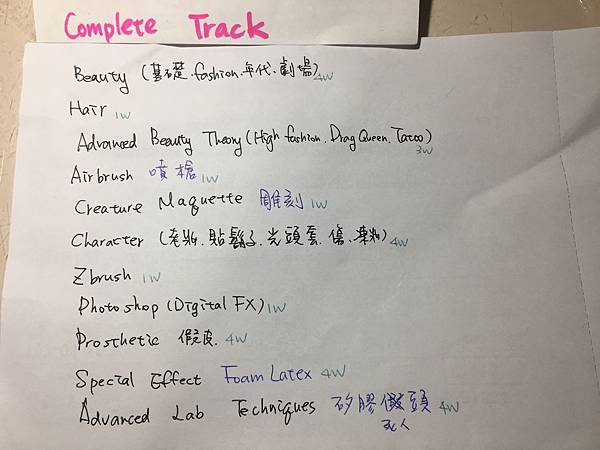 Complete Track
Beauty (基礎.fashion.年代.劇場) 4W
Hair 1W
Advanced Beauty Theory (High fashion. Drag Queen. Tatoo) 3W
Airbrush 噴槍 1W
Creature Maquette 雕刻 1W
Character (老妝.貼鬍子.光頭套.傷.) 4W
Zbrush 1W
Photoshop (Digital FX) 1W
Prosthetic 假皮. 4W
Special Effect Foam Latex 4W
Advanced Lab Techniques 矽膠假頭 4W
死人